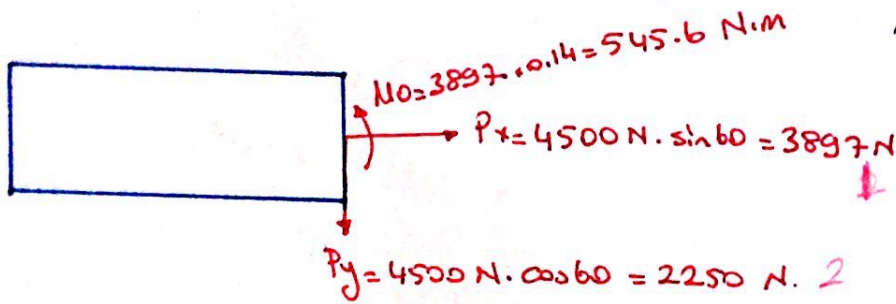 Mo=3897.0.14=545.6 N.m
Px=4500 N. sin60 = 3897 N
1
Py=4500 N. cos60 = 2250 N. 2